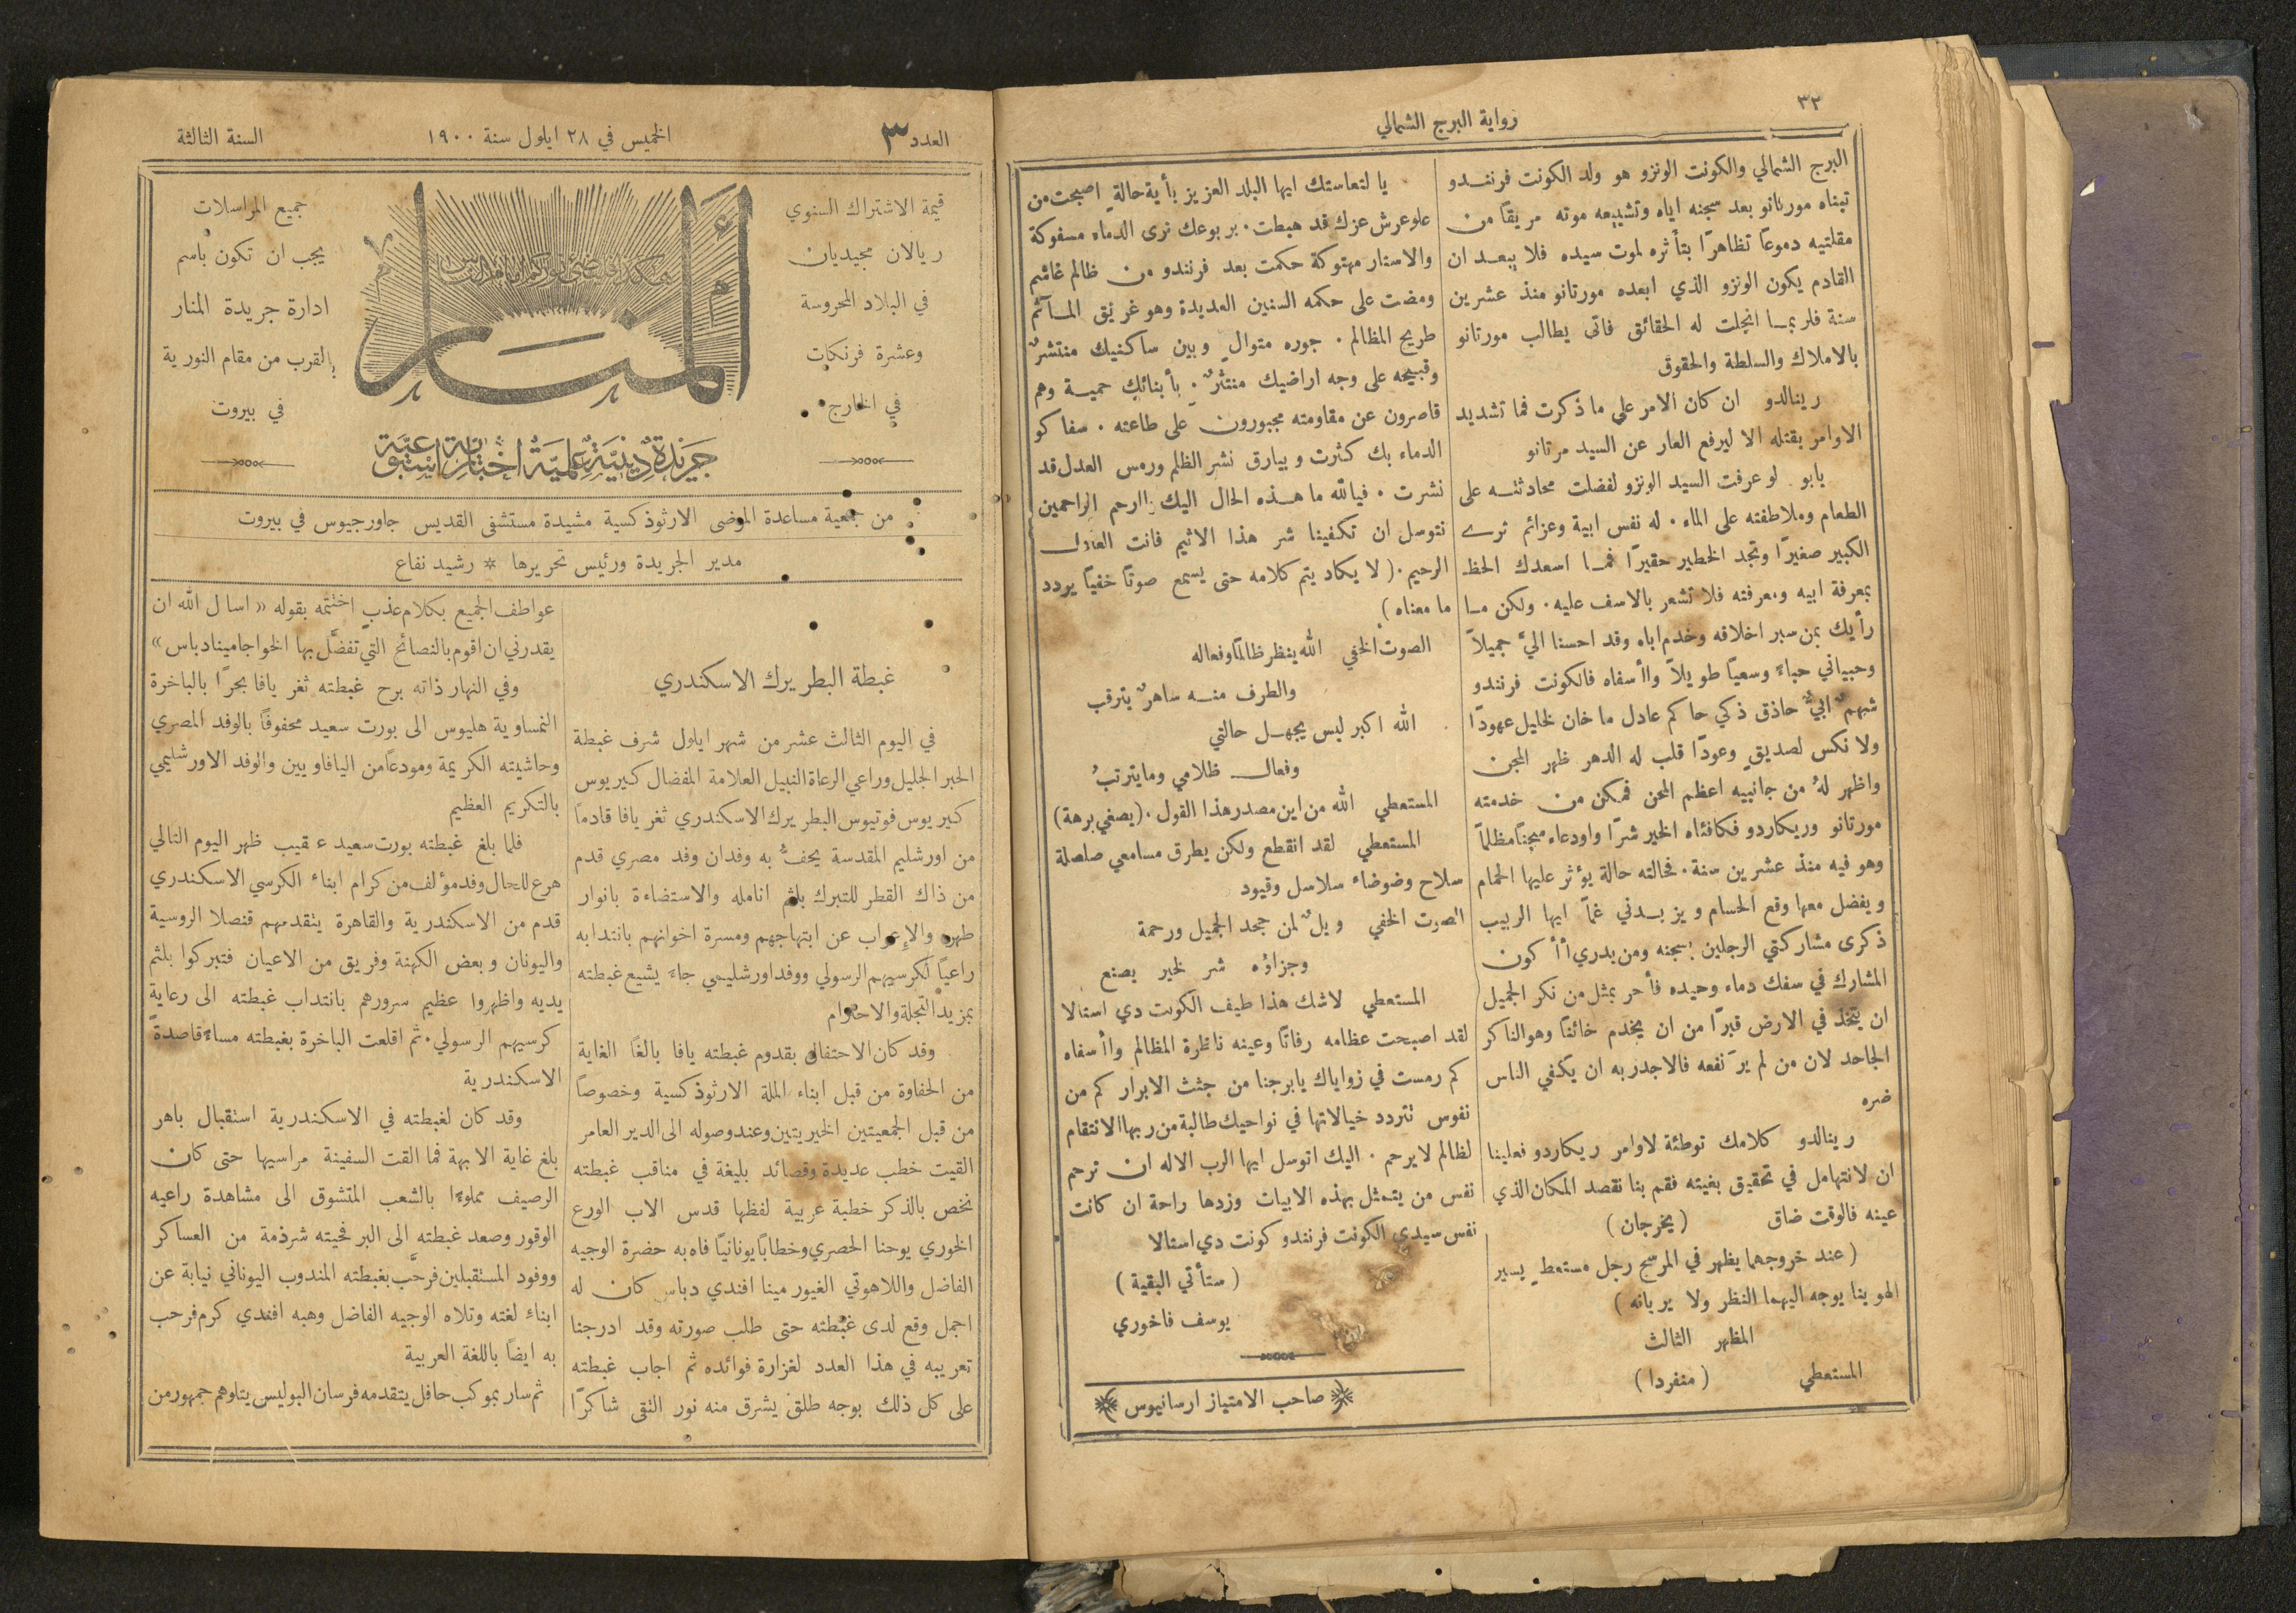 ٣٢
رواية البرج الشمالي
البرج الشمالي والكونت الونزو هو ولد الكونت فرنندو
تبناه مورتانو بعد سجنه اياه وتشييعه موته مريقًا من
مقلتيه دموعًا تظاهرًا بتأثره لموت سيده فلا يبعد ان
القادم يكون الونزو الذي ابعده مورتانو منذ عشرين
سنة فلربما انجلت له الحقائق فاتى يطالب مورتانو
بالاملاك والسلطة والحقوق
رينالدو ان كان الامر على ما ذكرت فما تشديد
الاوامر بقتله الا ليرفع العار عن السيد مرتانو
يابو لو عرفت السيد الونزو لفضلت محادثته على
الطعام وملاطفته على الماء . له نفس ابية وعزائم ترے
الكبير صغيرًا وتجد الخطير حقيرًا فما اسعدك الحظ
بمعرفة ابيه ومعرفته فلا تشعر بالاسف عليه . ولكن ما
رأيك بمن سبر اخلاقه وخدم اباه وقد احسنا اليَّ جميلاً
وحبياني حباءً وسعيًا طويلاً وأأسفاه فالكونت فرنندو
شهمٌ ابيٌّ حاذق ذكي حاكم عادل ما خان لخليل عهودًا
ولا نكس لصديقٍ وعودًا قلب له الدهر ظهر المجن
واظهر لهُ من جانبيه اعظم المحن فمكن من خدمته
مورتانو وريكاردو فكافئاه الخير شرًا واودعاه سجنًا مظلمًا
وهو فيه منذ عشرين سنة . فحالته حالة يؤثر عليها الحمام
ويفضل معها وقع الحسام ويزيدني غمًا ايها الربيب
ذكرى مشاركتي الرجلين بسجنه ومن يدري أأكون
المشارك في سفك دماء وحيده فأحر بمثل من نكر الجميل
ان يتخذ في الارض قبرًا من ان يخدم خائنًا وهو الناكر
الجاحد لان من لم يرَ نفعه فالاجدر به ان يكفي الناس
ضره
رينالدو كلامك توطئة لاوامر ريكاردو فعلينا
ان لا نتهامل في تحقيق بغيته فقم بنا نقصد المكان الذي
عينه فالوقت ضاق ( يخرجان )
( عند خروجهما يظهر في المرسح رجل مستعطٍ يسير
الهوينا يوجه اليهما النظر ولا يريانه )
المظهر الثالث
المستعطي ( منفردا )
يا لتعاستك ايها البلد العزيز بأية حالةٍ اصبحت من
علو عرش عزك قد هبطت . بربوعك نرى الدماء مسفوكة
والاستار مهتوكة حكمت بعد فرنندو من ظالم غاشم
ومضت على حكمه السنين العديدة وهو غريق المآثم
طريح المظالم . جوره متوالٍ وبين ساكنيك منتشرٌ
وقبيحه على وجه اراضيك منتثرٌ . بأبنائك حمية وهم
قاصرون عن مقاومته مجبورون على طاعته . سفاكو
الدماء بك كثرت وبيارق نشر الظلم ورمس العدل قد
نشرت . فيالله ما هذه الحال اليك يا ارحم الراحمين
نتوسل ان تكفينا شر هذا الاثيم فانت العادل
الرحيم . ( لا يكاد يتم كلامه حتى يسمع صوتًا خفيًا يردد
ما معناه )
الصوت الخفي الله ينظر ظالمًا وفعاله
والطرف منه ساهرٌ يترقب
الله اكبر ليس يجهل حالتي
وفعال ظلامي وما يترتبُ
المستعطي الله من اين مصدر هذا القول . ( يصغي برهة )
المستعطي لقد انقطع ولكن يطرق مسامعي صلصلة
سلاح وضوضاء سلاسل وقيود
الصوت الخفي ويلٌ لمن جحد الجميل ورحمة
وجزاؤه شر لخير يصنع
المستعطي لا شك هذا طيف الكونت دي استالا
لقد اصبحت عظامه رفاتًا وعينه ناظرة المظالم وأأسفاه
كم رمست في زواياك يا برجنا من جثث الابرار كم من
نفوس تتردد خيالاتها في نواحيك طالبة من ربها الانتقام
لظالم لا يرحم . اليك اتوسل ايها الرب الاله ان ترحم
نفس من يتمثل بهذه الابيات وزدها راحة ان كانت
نفس سيدي الكونت فرنندو كونت دي استالا
( ستأتي البقية )
يوسف فاخوري
صاحب الامتياز ارسانيوس
العدد ٣
الخميس في ٢٨ ايلول سنة ١٩٠٠
السنة الثالثة
قيمة الاشتراك السنوي
ريالان مجيديان
في البلاد المحروسة
وعشرة فرنكات
في الخارج
هكذا فليضئ نوركم امام الناس
المنار
جريدة دينية علمية اخبارية اسبوعية
جميع المراسلات
يجب ان تكون باسم
ادارة جريدة المنار
بالقرب من مقام النورية
في بيروت
من جمعية مساعدة المرضى الارثوذكسية مشيدة مستشفى القديس جاورجيوس في بيروت
مدير الجريدة ورئيس تحريرها * رشيد نفاع
غبطة البطريرك الاسكندري
في اليوم الثالث عشر من شهر ايلول شرف غبطة
الحبر الجليل وراعي الرعاة النبيل العلامة المفضال كيريوس
كيريوس فوتيوس البطريرك الاسكندري ثغر يافا قادمًا
من اورشليم المقدسة يحفُّ به وفدان وفد مصري قدم
من ذاك القطر للتبرك بلثم انامله والاستضاءة بانوار
طهره والإعراب عن ابتهاجهم ومسرة اخوانهم بانتدابه
راعيًا لكرسيهم الرسولي ووفد اورشليمي جاءَ يشيع غبطته
بمزيد التجلة والاحترام
وقد كان الاحتفال بقدوم غبطته يافا بالغًا الغاية
من الحفاوة من قبل ابناء الملة الارثوذكسية وخصوصًا
من قبل الجمعيتين الخيريتين وعند وصوله الى الدير العامر
القيت خطب عديدة وقصائد بليغة في مناقب غبطته
نخص بالذكر خطبة عربية لفظها قدس الاب الورع
الخوري يوحنا الحصري وخطابًا يونانيًا فاه به حضرة الوجيه
الفاضل واللاهوتي الغيور مينا افندي دباس كان له
اجمل وقع لدى غبطته حتى طلب صورته وقد ادرجنا
تعريبه في هذا العدد لغزارة فوائده ثم اجاب غبطته
على كل ذلك بوجه طلق يشرق منه نور التقى شاكرًا
عواطف الجميع بكلام عذبٍ اختتمه بقوله « اسال الله ان
يقدرني ان اقوم بالنصائح التي تفضَّل بها الخواجا مينا دباس »
وفي النهار ذاته برح غبطته ثغر يافا بحرًا بالباخرة
النمساوية هليوس الى بورت سعيد محفوفًا بالوفد المصري
وحاشيته الكريمة ومودعًا من اليافاويين والوفد الاورشليمي
بالتكريم العظيم
فلما بلغ غبطته بورت سعيد عقيب ظهر اليوم التالي
هرع للحال وفد مؤلف من كرام ابناء الكرسي الاسكندري
قدم من الاسكندرية والقاهرة يتقدمهم قنصلا الروسية
واليونان وبعض الكهنة وفريق من الاعيان فتبركوا بلثم
يديه واظهروا عظيم سرورهم بانتداب غبطته الى رعاية
كرسيهم الرسولي . ثم اقلعت الباخرة بغبطته مساءً قاصدةً
الاسكندرية
وقد كان لغبطته في الاسكندرية استقبال باهر
بلغ غاية الابهة فما القت السفينة مراسيها حتى كان
الرصيف مملوءًا بالشعب المتشوق الى مشاهدة راعيه
الوقور وصعد غبطته الى البر فحيته شرذمة من العساكر
ووفود المستقبلين فرحَّب بغبطته المندوب اليوناني نيابة عن
ابناء لغته وتلاه الوجيه الفاضل وهبه افندي كرم فرحب
به ايضًا باللغة العربية
ثم سار بموكب حافل يتقدمه فرسان البوليس يتلوهم جمهور من